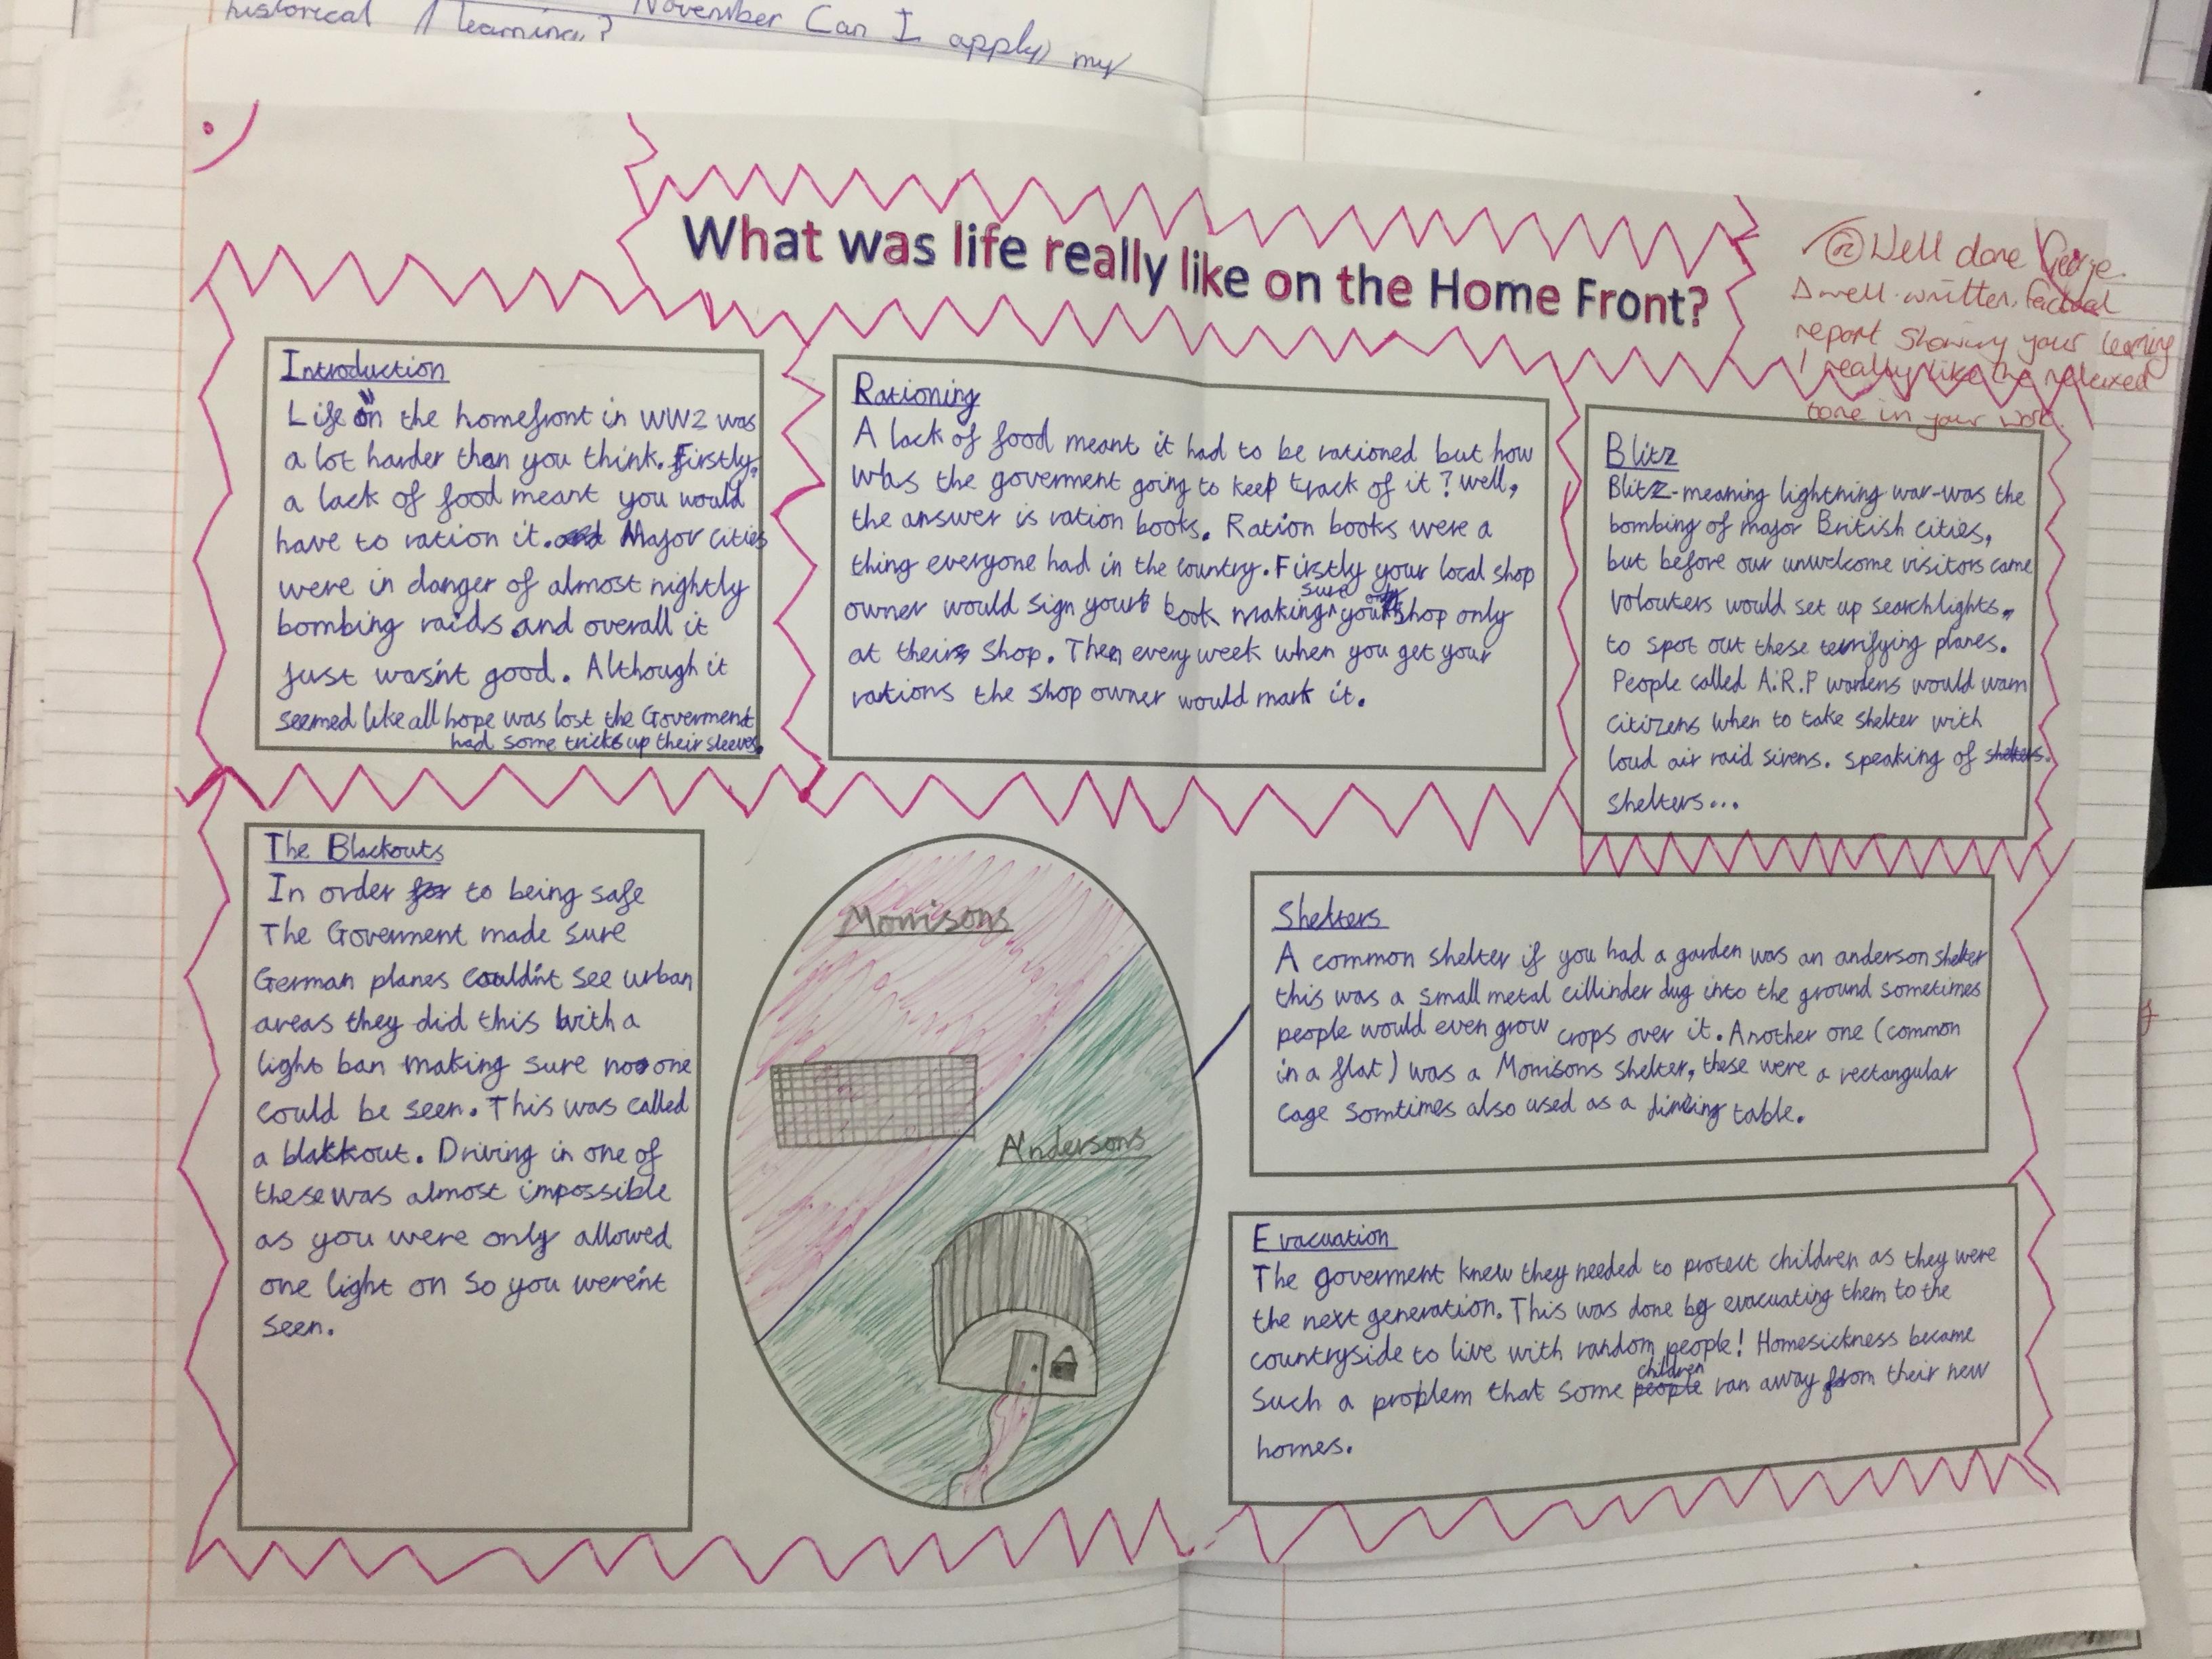 November Can I apply my
historical learning?
What was life really like on the Home Front?
Well done George.
A well written, factual
report showing your learning
I really like the relaxed
tone in your work.
Introduction
Life on the homefront in WW2 was
a lot harder than you think. Firstly,
a lack of food meant you would
have to ration it. Major cities
were in danger of almost nightly
bombing raids and overall it
just wasn't good. Although it
seemed like all hope was lost the Goverment
had some tricks up their sleeves.
Rationing
A lack of food meant it had to be rationed but how
was the goverment going to keep track of it? well,
the answer is ration books. Ration books were a
thing everyone had in the country. Firstly your local shop
owner would sign your book making sure you shop only
at their shop. Then every week when you get your
rations the shop owner would mark it.
Blitz
Blitz-meaning lightning war-was the
bombing of major British cities,
but before our unwelcome visitors came
volouters would set up searchlights,
to spot out these terrifying planes.
People called A.R.P wardens would warn
citizens when to take shelter with
loud air raid sirens. speaking of shelters.
shelters...
The Blackouts
In order for to being safe
The Goverment made sure
German planes couldn't see urban
areas they did this with a
light ban making sure no one
could be seen. This was called
a blackout. Driving in one of
these was almost impossible
as you were only allowed
one light on so you weren't
seen.
Morrisons
Andersons
Shelters
A common shelter if you had a garden was an anderson shelter
this was a small metal cillinder dug into the ground sometimes
people would even grow crops over it. Another one (common
in a flat) was a Morrisons shelter, these were a rectangular
cage somtimes also used as a dining table.
Evacuation
The goverment knew they needed to protect children as they were
the next generation. This was done by evacuating them to the
countryside to live with random people! Homesickness became
such a problem that some people children ran away from their new
homes.